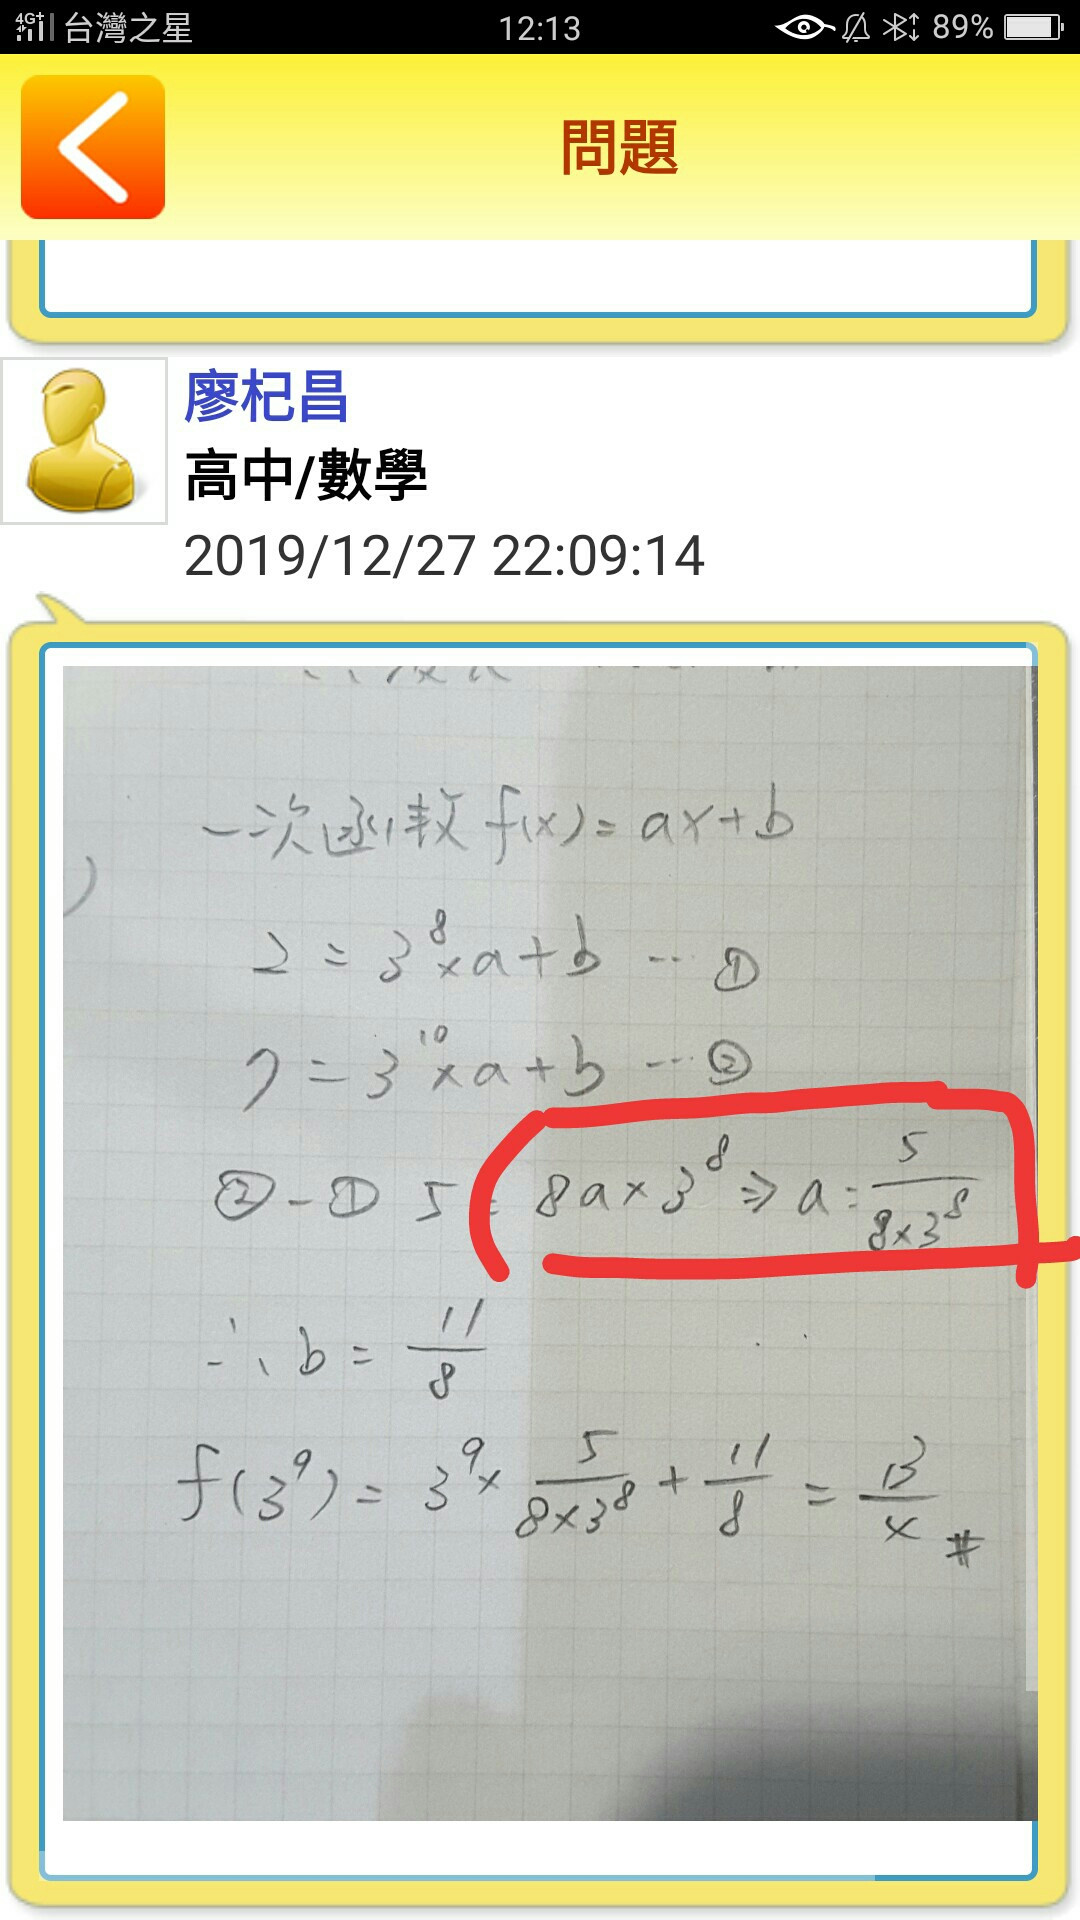 4G+ 台灣之星 12:13 89%
問題
廖杞昌
高中/數學
2019/12/27 22:09:14
一次函數 f(x) = ax+b
2 = 3⁸×a+b ... ①
7 = 3¹⁰×a+b ... ②
②-① 5 = 8a×3⁸ ⇒ a = 5/(8×3⁸)
∴ b = 11/8
f(3⁹) = 3⁹× 5/(8×3⁸) + 11/8 = 13/4 #